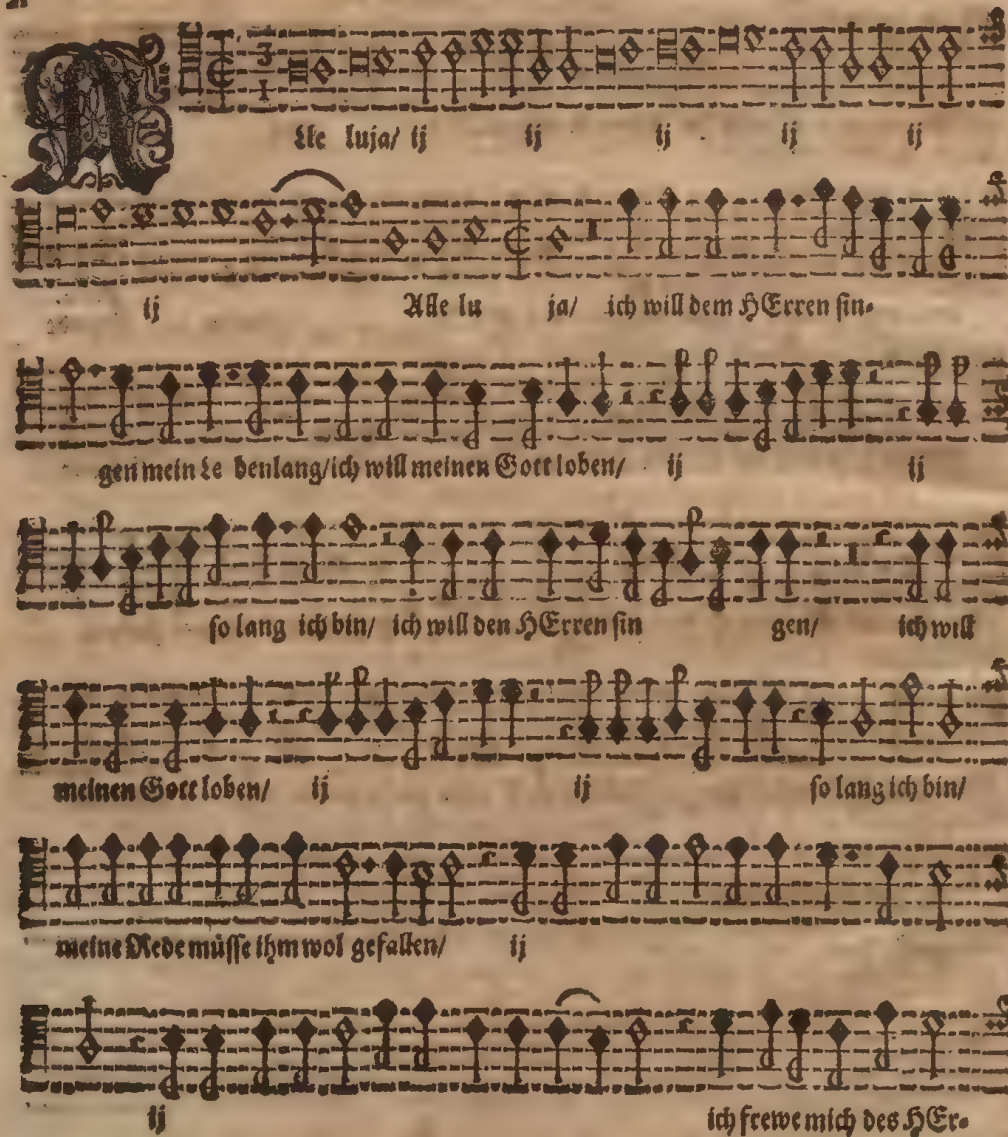 Alle luja/ ij ij ij ij ij
ij Alle lu ja/ ich will dem HErren sin-
gen mein Le benlang/ich will meinen Gott loben/ ij ij
so lang ich bin/ ich will den HErren sin gen/ ich will
meinen Gott loben/ ij ij so lang ich bin/
meine Rede müsse ihm wol gefallen/ ij
ij ich frewe mich des HEr-